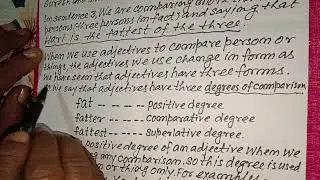 In sentence 3, We are comparing
persons (three persons in fact) and saying that
Hari is the fattest of the three.
When we use adjectives to coompare person or
things, the adjectives we use change in form as
We have seen that adjectives have three forms.
We say that adjectives have three degrees of comparison
fat - - - - - - Positive degree
fatter - - - - - comparative degree
fattest - - - - - Superlative degree.
positive degree of an adjective When We
any comparison. So this degree is used
on or thing only. For example:-